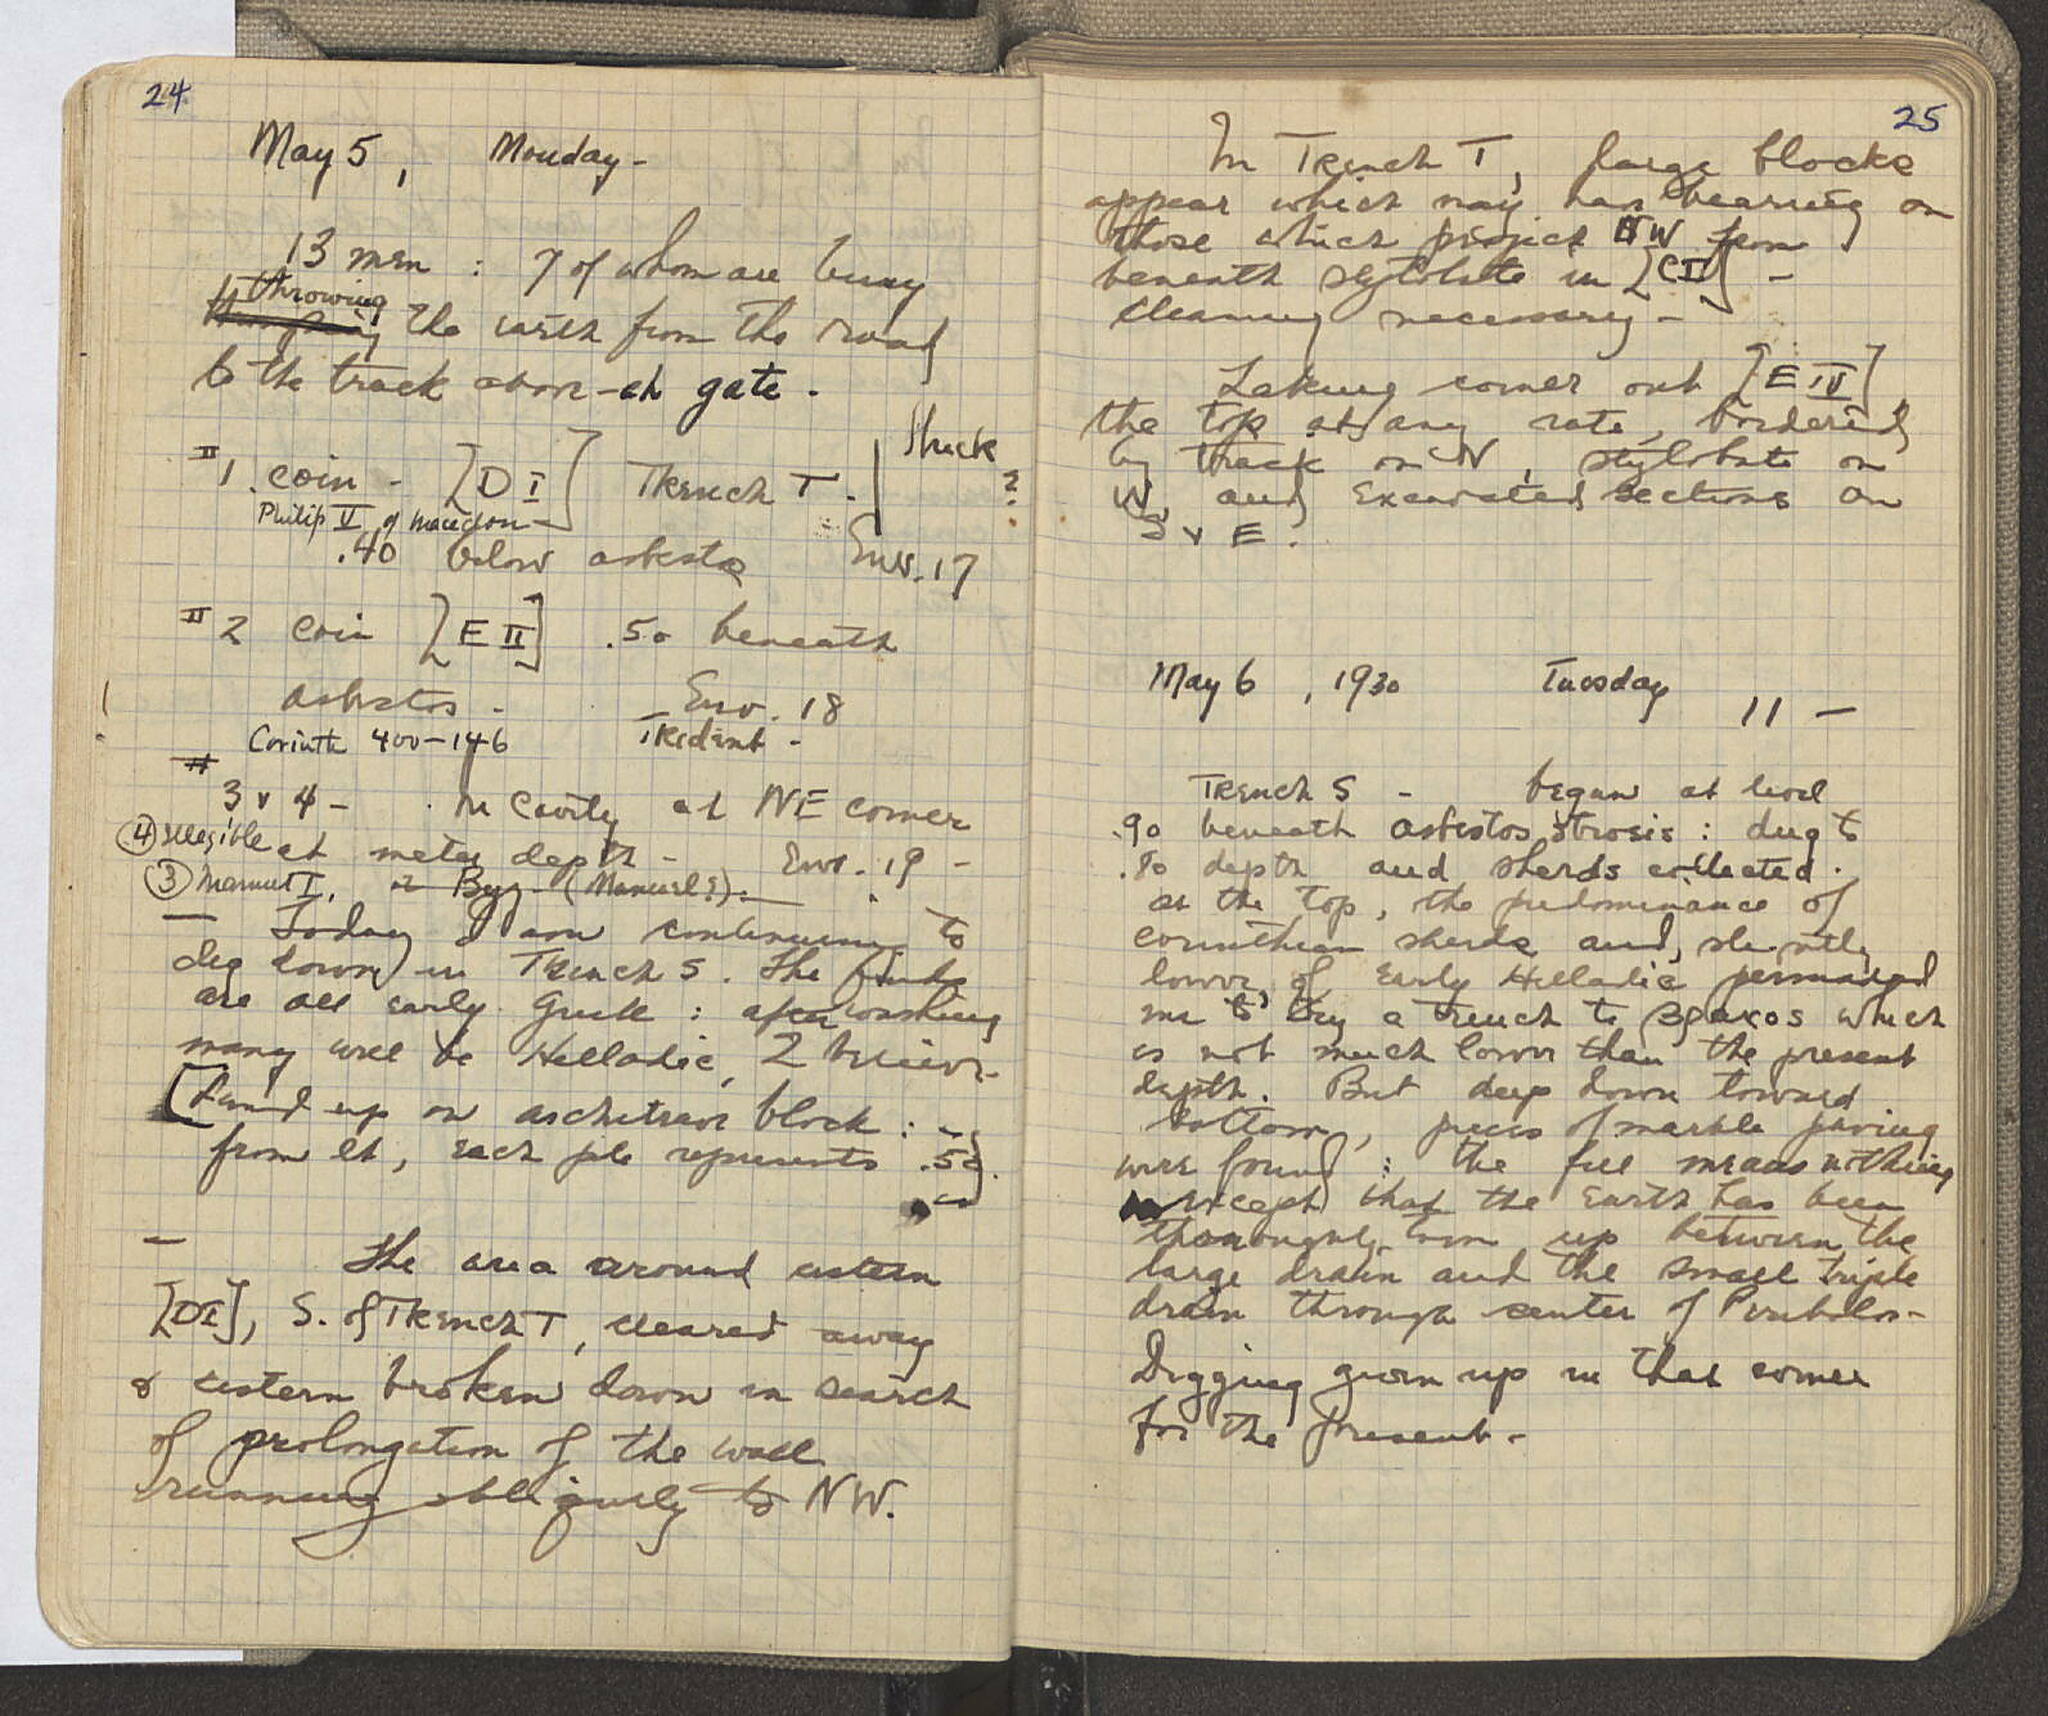 24
May 5, Monday -
13 men : 7 of whom are busy
throwing
the earth from the road
to the track above - at gate .
#1. coin - [D I] Trench T . | Stuck ?
Philip V of Macedon -
.40 below asbesta Env. 17
#2 coin [E II] .50 beneath
asbestos - Env. 18
Corinth 400-146 Trident -
#
3 & 4 - In cavity at NE corner
④ illegible at meter depth - Env. 19 -
③ Manuel I, Byz. (Manuel?).
— Today I am continuing to
dig down in Trench S. The finds
are all early Greek : after washing
many will be Helladic, I believe -
[Found up on architrave block :
from it, each pile represents .50].
— The area around cistern
[DI], S. of Trench T, cleared away
& cistern broken down in search
of prolongation of the wall
running obliquely to NW.
25
In Trench T, large blocks
appear which may have bearing on
those which project NW from
beneath stylobate in [C I] -
Cleaning necessary -
Taking corner out [E IV]
the top at any rate, bordered
by track on N, stylobate on
W, and excavated sections on
S & E.
May 6, 1930 Tuesday 11 —
Trench S - began at level
.90 beneath asbestos strosis : dug to
.80 depth and sherds collected.
At the top, the predominance of
Corinthian sherds and, slightly
lower, of Early Helladic persuaded
me to dig a trench to βραχος which
is not much lower than the present
depth. But deep down toward
bottom, pieces of marble paving
were found : the fill means nothing
except that the earth has been
thoroughly torn up between the
large drain and the small triple
drain through center of Peribolos -
Digging given up in that corner
for the present -